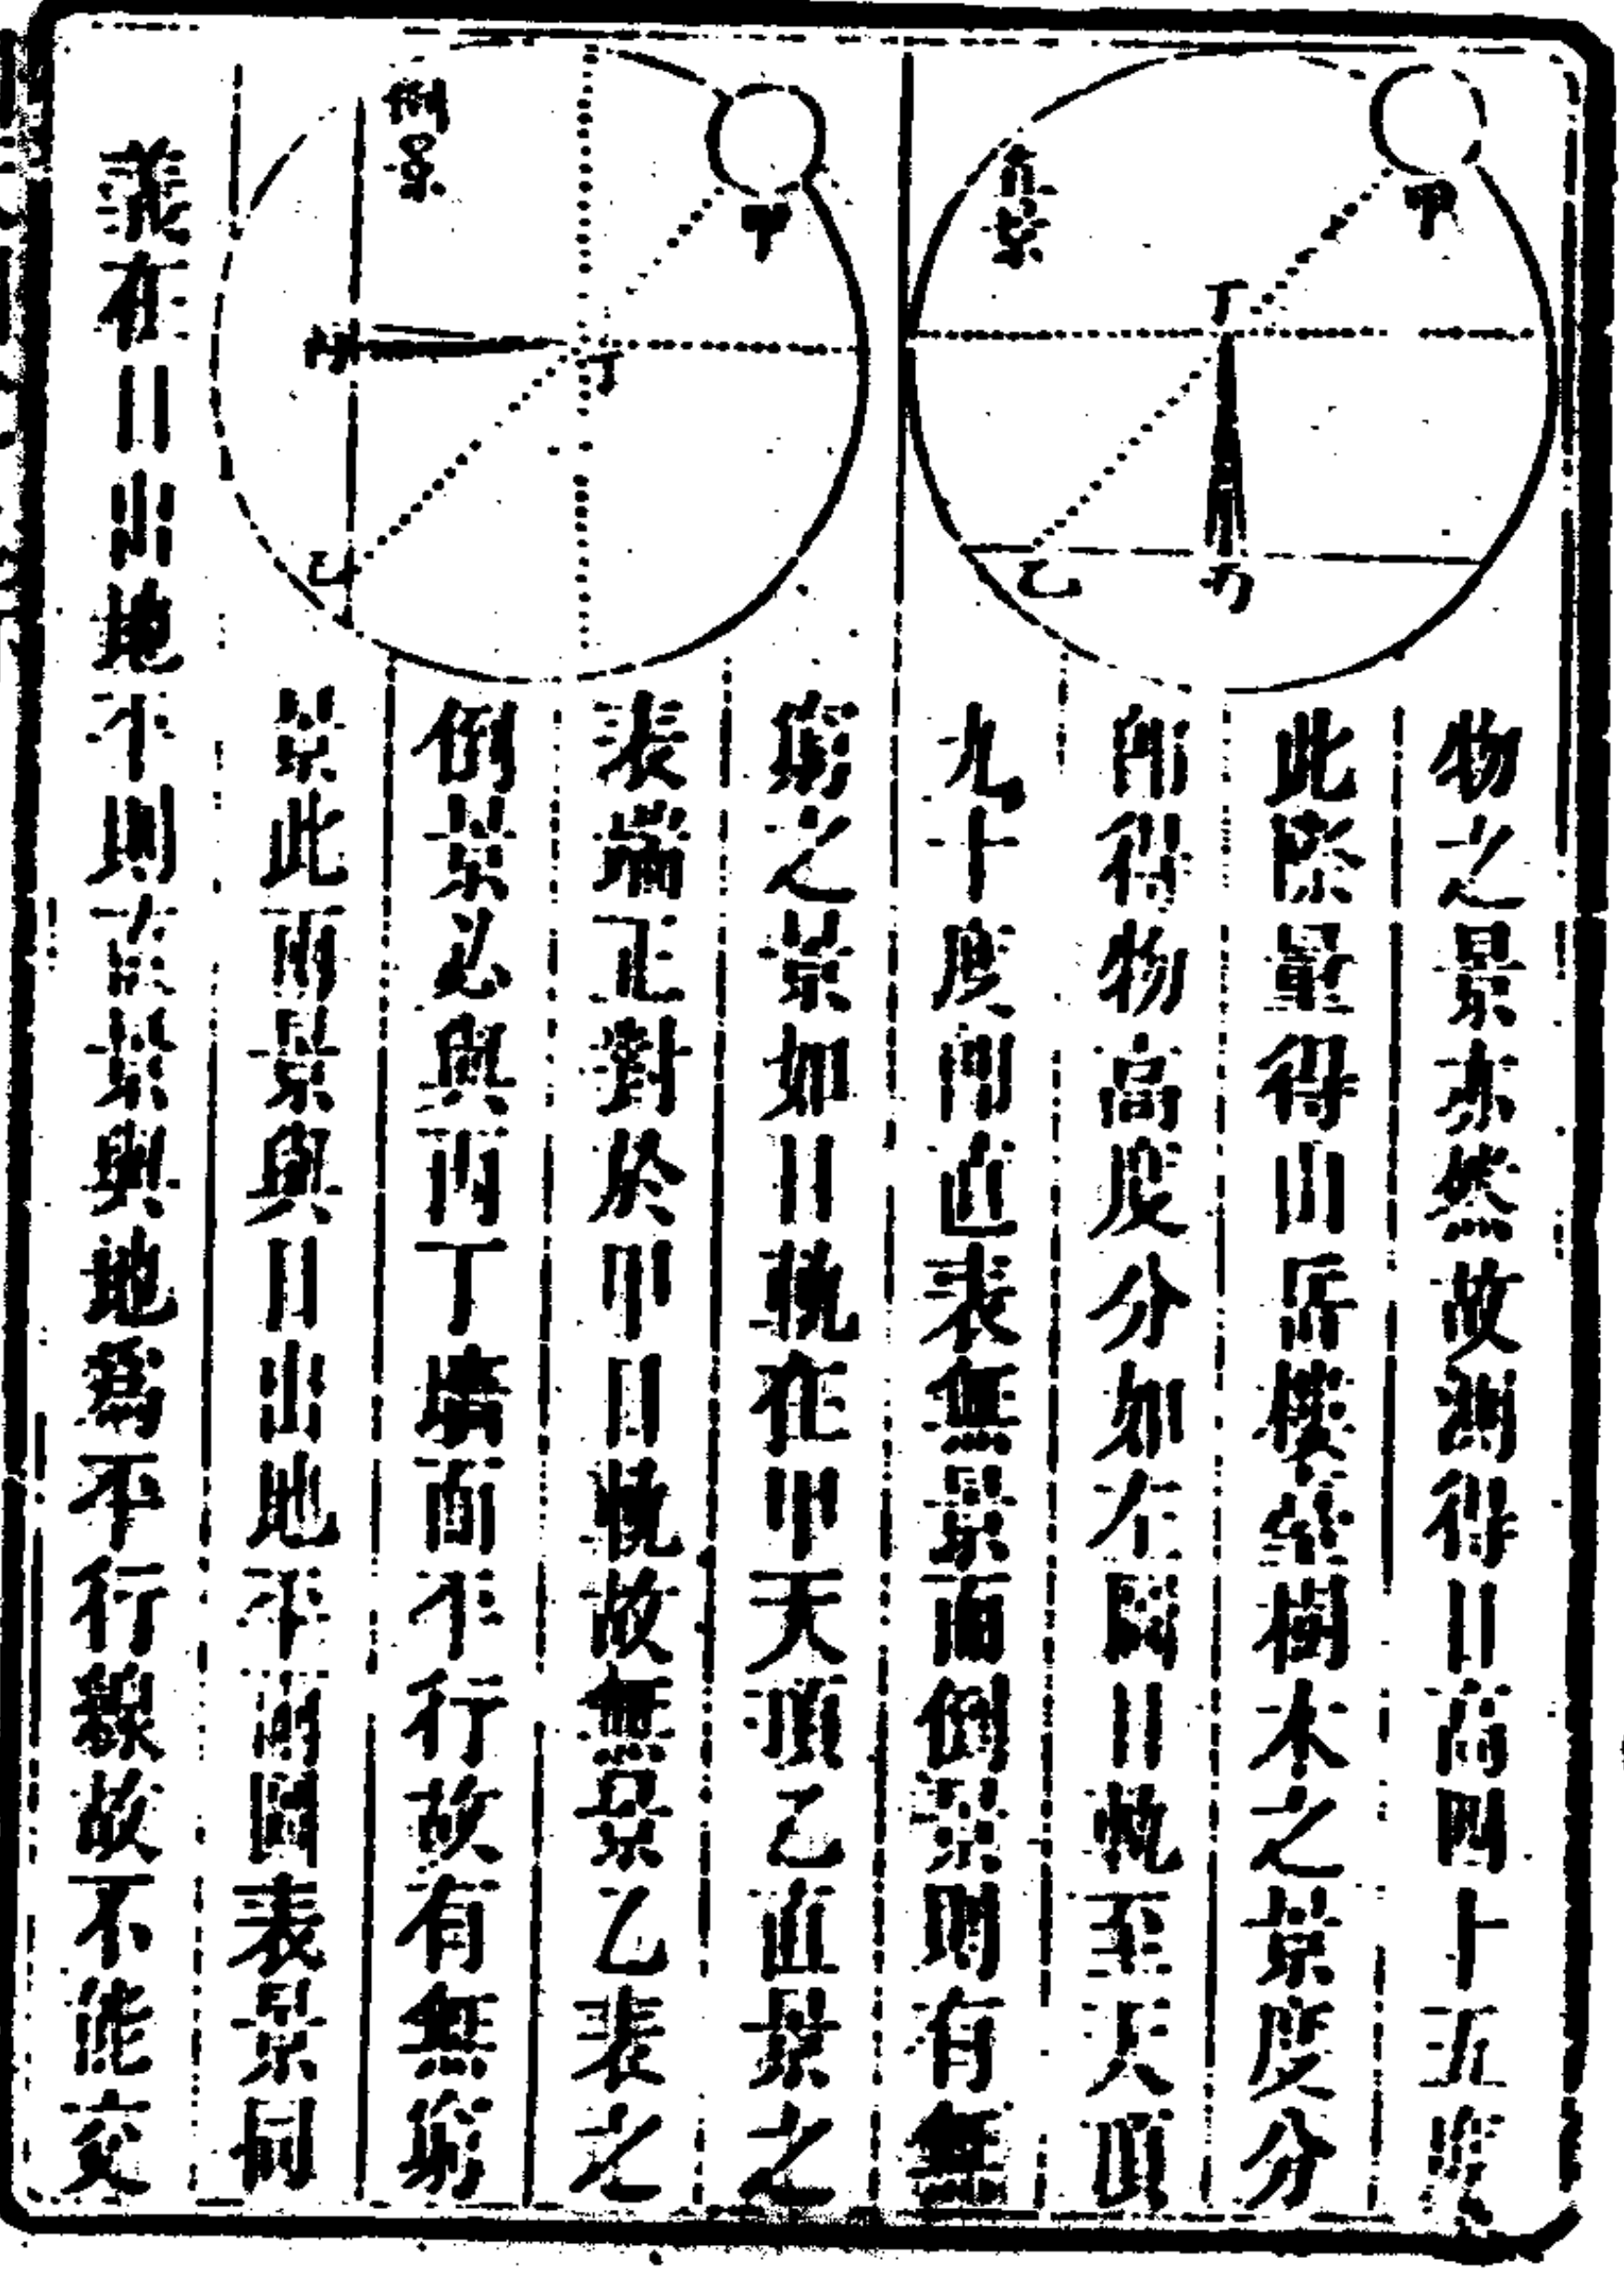 直景
甲
丁
乙
丙
倒景
甲
丁
丙
乙
物之景亦然故測得日高四十五度
此際量得山岳樓臺樹木之景度分
卽得物高度分如左圖日軌至天頂
九十度則直表無景而倒景則有無
窮之景如日軌在甲天頂乙直景之
表端正對於甲日軌故無景乙表之
倒景必與丙丁墻面平行故有無窮
景此兩景與日出地平兩圖表景同
義在日出地平則直景與地爲平行線故不能交